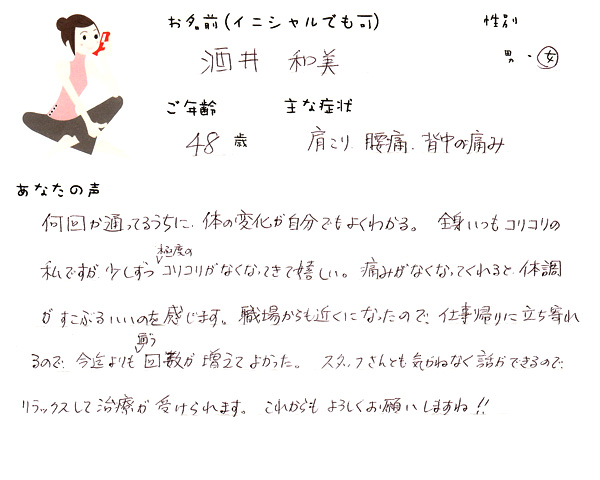 お名前(イニシャルでも可) 性別
酒井 和美 男・女
ご年齢 主な症状
48 歳 肩こり 腰痛、背中の痛み
あなたの声
何回か通ってるうちに、体の変化が自分でもよくわかる。 全身いつもコリコリの
極度の
私ですが 少しずつコリコリがなくなってきて嬉しい。痛みがなくなってくれると、体調
がすこぶるいいのを感じます。職場からも近くになったので、仕事帰りに立ち寄れ
通う
るので、今迄よりも回数が増えてよかった。 スタッフさんとも気がねなく話ができるので、
リラックスして治療が受けられます。これからもよろしくお願いしますね!!